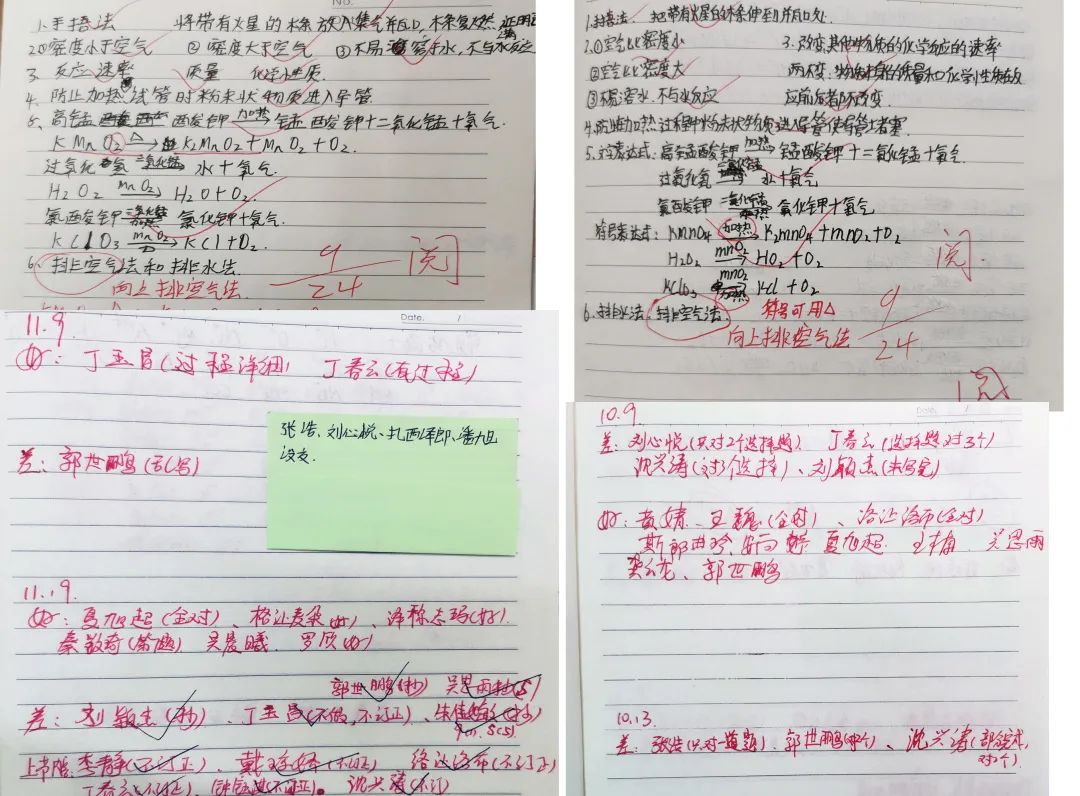 No.
1. 手捂法 将带有火星的木条放入集气瓶口,木条复燃
2.①密度小于空气 ②密度大于空气 ③不易溶于水,不与水反应
3. 反应速率 质量 化学性质.
4. 防止加热试管时粉末状物质进入导管
5. 高锰酸钾 加热 锰酸钾+二氧化锰+氧气.
KMnO2 △ K2MnO2+MnO2+O2.
过氧化氢 二氧化锰 水+氧气.
H2O2 MnO2 H2O+O2.
氯酸钾 二氧化锰 加热 氯化钾+氧气.
KClO3 MnO2 KCl+O2.
6. 排空气法和排水法.
向上排空气法.
9/24 阅
把带有火星的木条伸到瓶口处.
2.①空气比密度小 3.改变其他物质的化学反应的速率
②空气比密度大 两不变:物质本身的质量和化学性质在
③不易溶水.不与水反应 应前后都不改变.
4.防止加热过程中粉末状物质进入导管使导管堵塞
5.文字表达式:高锰酸钾 加热 锰酸钾+二氧化锰+氧气.
过氧化氢 二氧化锰 水+氧气
氯酸钾 二氧化锰 加热 氯化钾+氧气
符号表达式:KMnO4 加热 K2MnO4+MnO2+O2
H2O2 MnO2 HO2+O2
KClO3 MnO2 加热 KCl+O2
6.排水法.排空气法. 符号可用△
向上排空气法
9/24 阅
阅
Date. /
11.9
好: 丁玉昌(过程详细) 丁春云(有过程)
张浩、刘心悦、扎西泽郎、潘旭
没交.
差: 郭世鹏(乱写)
11.19.
好: 夏旭起(全对)、格让麦朵(好)、泽称志玛(好).
秦敬奇(常规) 吴晨曦. 罗欣(好)
郭世鹏(抄) 吴思雨
差: 刘颖杰(抄)、丁玉昌(不做,不订正)、
李静(不订正)、戴(不订正) 洛让洛布(不订正)
丁春云(不订正) (不订正)。沈兴涛(不订)
Date /
10.9
差: 刘心悦(只对2个选择题) 丁春云(选择题对3个)
沈兴涛(对3个选择)、刘颖杰(未写完)
好: 黄婧、王魏(全对)、洛让洛布(全对)
斯郎曲珍、 夏旭超. 王 吴思雨
龙、郭世鹏
10.13.
差: 张浩(只对一道题)、郭世鹏、沈兴涛